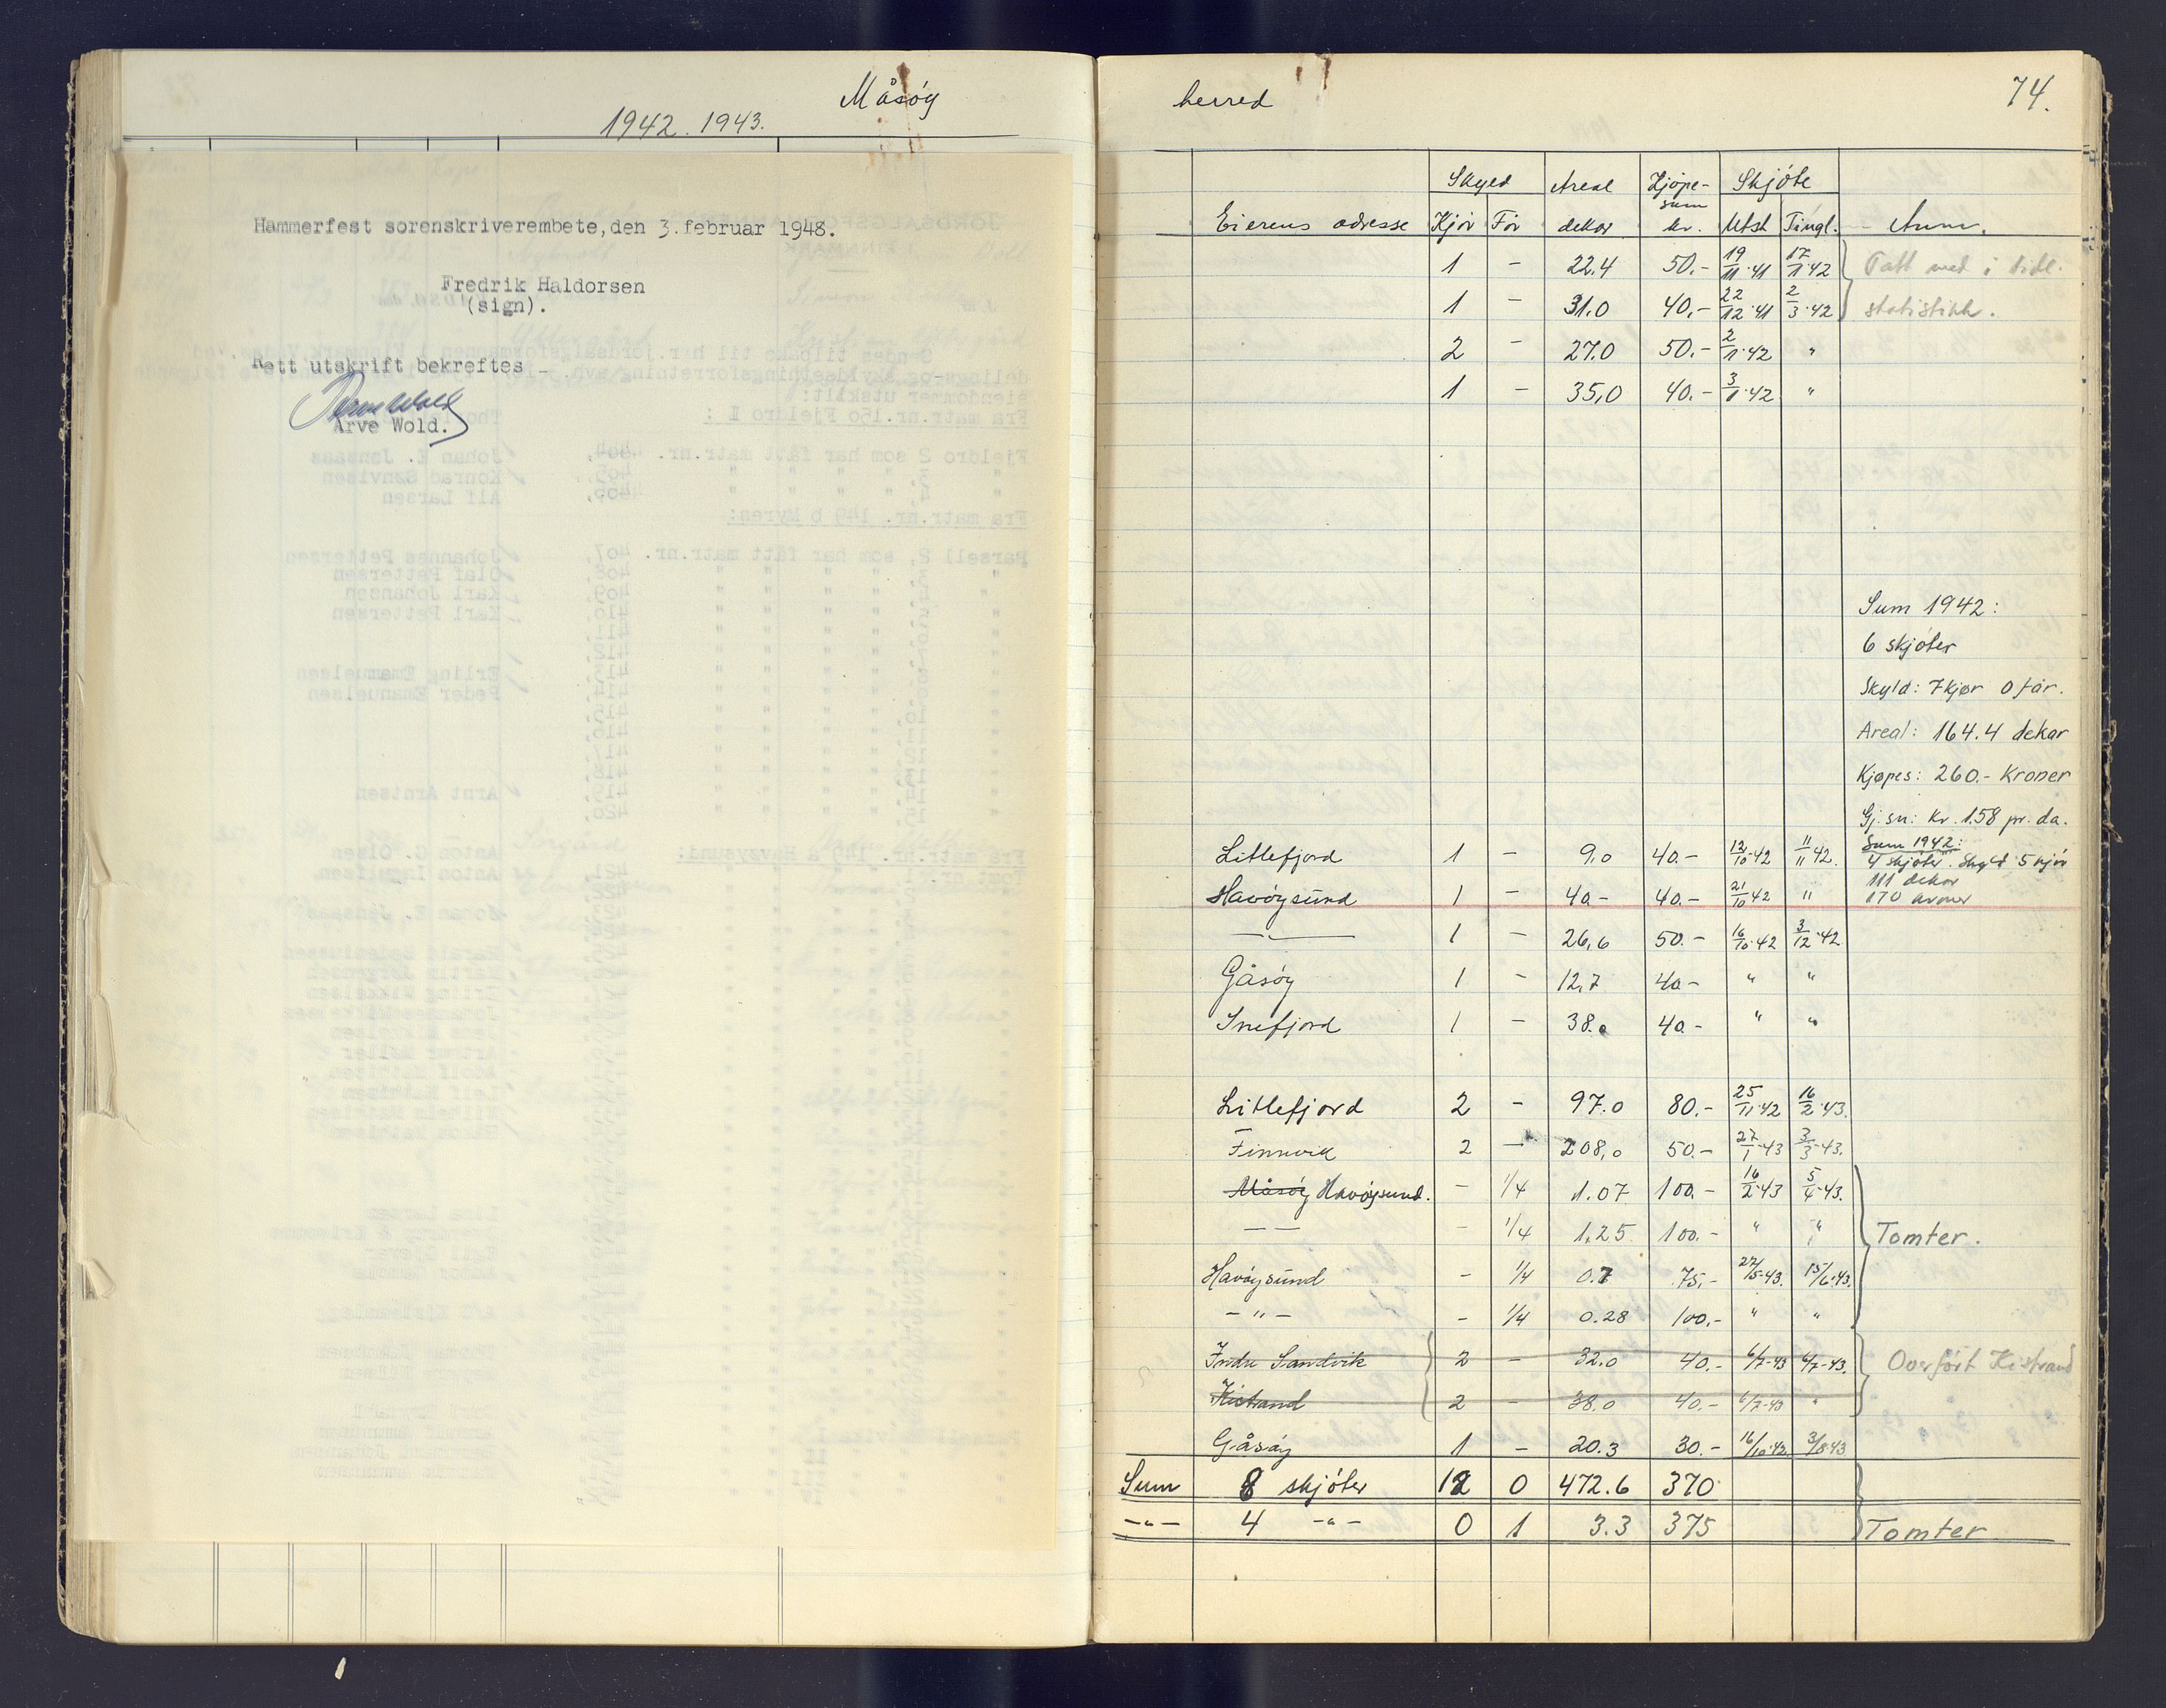 Måsöy
1942. 1943.
Hammerfest sorenskriverembete, den 3. februar 1948.
Fredrik Haldorsen
(sign).
Rett utskrift bekreftes
Arve Wold
Arve Wold.
herred 74.
Skyld Areal Kjöpe- Skjöte
sum
Eierens adresse Kjör Får dekar kr. Utst Tingl. Anm.
1 - 22.4 50.- 19/11.41 17/1.42 Tatt med i tidl.
1 - 31.0 40.- 22/12.41 2/3.42 statistikk.
2 - 27.0 50.- 2/1.42 "
1 - 35,0 40.- 3/1.42 "
Sum 1942:
6 skjöter
Skyld: 7 kjør 0 får.
Areal: 164.4 dekar
Kjøpes: 260.- Kroner
Gj.sn: kr. 1.58 pr. da.
Sum 1942:
Litlefjord 1 - 9,0 40.- 12/10.42 11/11 42. 4 skjöter. Skyld 5 kjör
111 dekar
Havöysund 1 - 40.- 40.- 21/10 42 " 170 kroner
— " — 1 - 26,6 50.- 16/10.42 3/12.42
Gåsöy 1 - 12,7 40- " "
Snefjord 1 - 38.0 40.- " "
Litlefjord 2 - 97.0 80.- 25/11.42 16/2.43.
Finnvik 2 - 208,0 50.- 27/1.43 3/3.43.
Måsöy Havöysund. - 1/4 1.07 100.- 16/2.43 5/4.43.
— — - 1/4 1,25 100.- " " Tomter.
Havöysund - 1/4 0.7 75.- 22/5-43. 15/6.43.
- " - - 1/4 0.28 100.- " "
Indre Sandvik 2 - 32.0 40.- 6/7-43 6/7-43. Overfört Kistrand
Kistrand 2 - 38.0 40.- 6/7-43 "
Gåsöy 1 - 20.3 30.- 16/10.42. 3/8 43
Sum 8 skjöter 12 0 472.6 370
-"- 4 -"- 0 1 3.3 375 Tomter